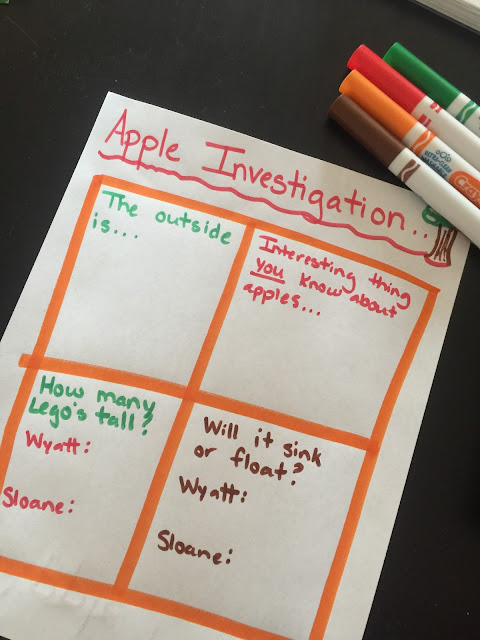 Apple Investigation...
The outside
is...
Interesting thing
you know about
apples...
How many
Lego's tall?
Wyatt:
Sloane:
Will it sink
or float?
Wyatt:
Sloane: